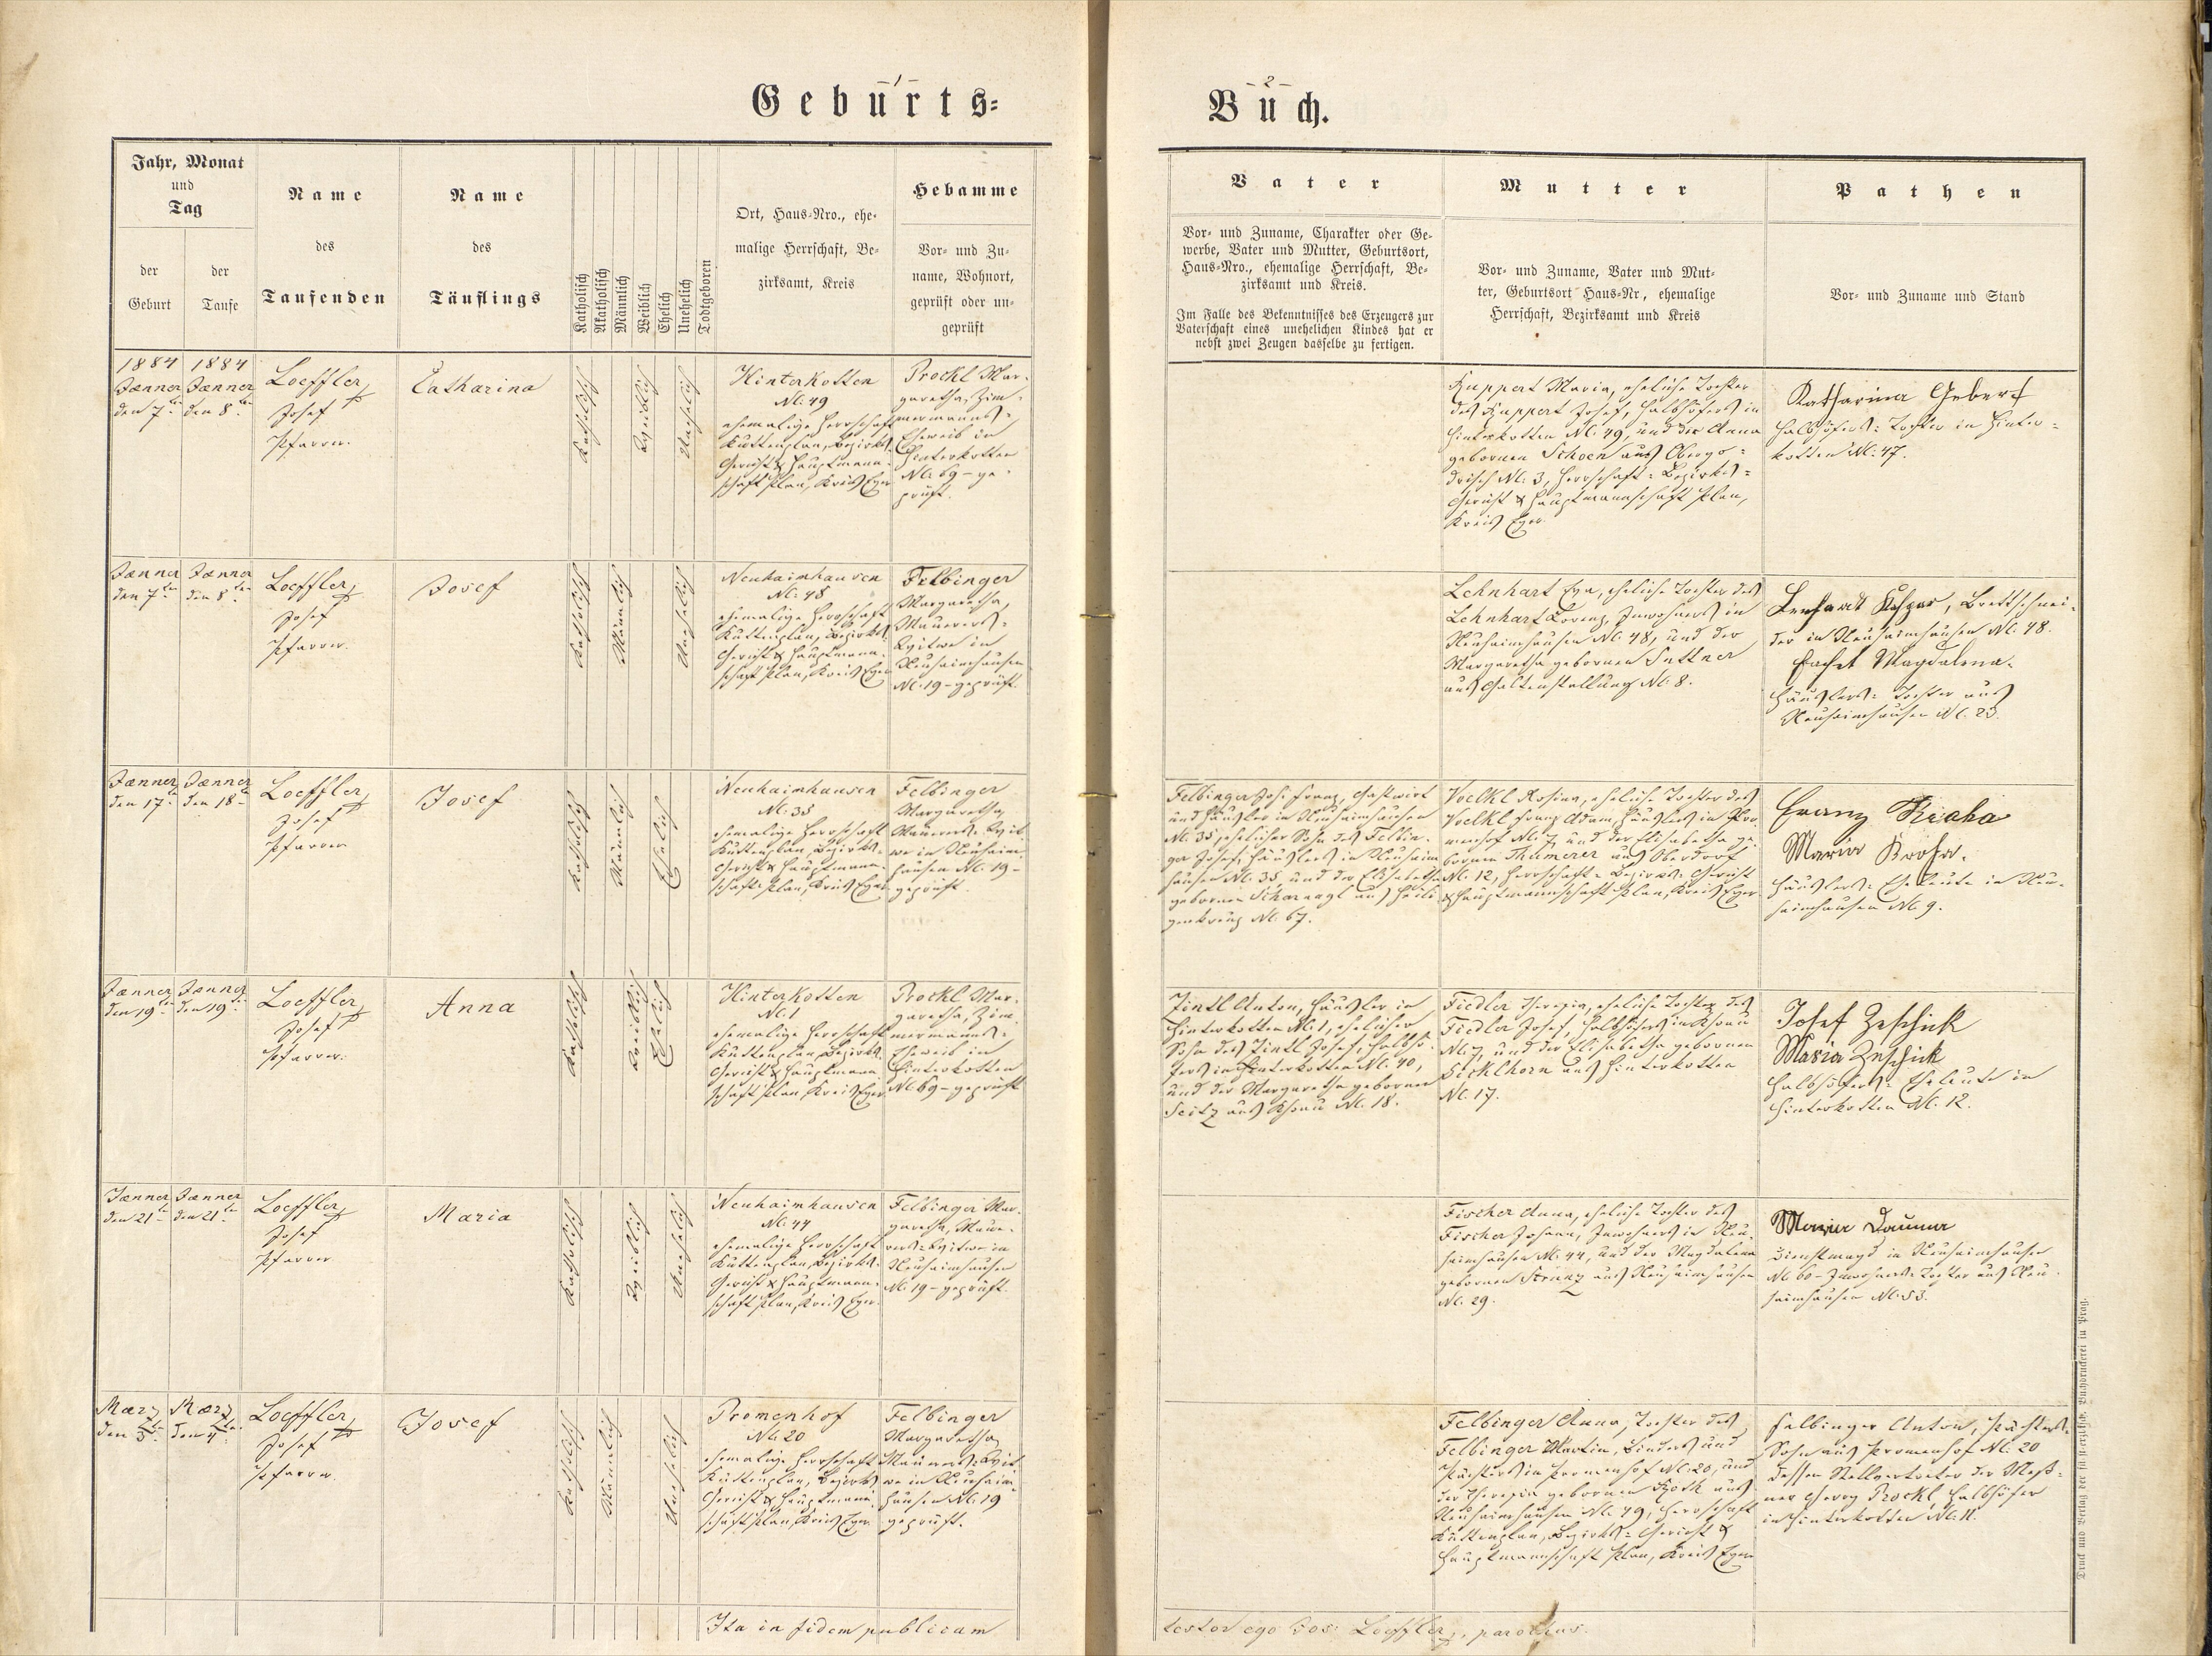 -1-
Geburts=
Jahr, Monat
und
Tag
der
Geburt
der
Taufe
Name
des
Taufenden
Name
des
Täuflings
Katholisch
Akatholisch
Männlich
Weiblich
Ehelich
Unehelich
Todtgeboren
Ort, Haus=Nro., ehe-
malige Herrschaft, Be-
zirksamt, Kreis
Hebamme
Vor- und Zu-
name, Wohnort,
geprüft oder un-
geprüft
1884
Jænner
den 7ten
1884
Jænner
den 8ten
Loeffler
Josef
Pfarrer.
Catharina
Katholisch
Weiblich
Unehelich
Hinterkotten
N: 49
ehemalige Herrschaft
Kuttenplan, Bezirks-
Gericht & Hauptmann-
schaft Plan, Kreis Eger
Prockl Mar-
garetha, Zim-
mermanns-
Eheweib in
Hinterkotten
N: 69 - ge-
prüft.
Jænner
den 7ten
Jænner
den 8ten
Loeffler
Josef
Pfarrer.
Josef
Katholisch
Männlich
Unehelich
Neuhaimhausen
N: 48
ehemalige Herrschaft
Kuttenplan, Bezirks-
Gericht & Hauptmann-
schaft Plan, Kreis Eger
Felbinger
Margaretha,
Maurers-
Witwe in
Neuhaimhausen
N: 19 - geprüft.
Jænner
den 17ten
Jænner
den 18ten
Loeffler
Josef
Pfarrer
Josef
Katholisch
Männlich
Ehelich
Neuhaimhausen
N: 35
ehemalige Herrschaft
Kuttenplan, Bezirks-
Gericht & Hauptmann-
schaft Plan, Kreis Eger
Felbinger
Margaretha,
Maurers-Wit-
we in Neuhaim-
hausen N: 19 -
geprüft.
Jænner
den 19ten
Jænner
den 19ten
Loeffler
Josef
Pfarrer.
Anna
Katholisch
Weiblich
Ehelich
Hinterkotten
N: 1
ehemalige Herrschaft
Kuttenplan, Bezirks-
Gericht & Hauptmann-
schaft Plan, Kreis Eger
Prockl Mar-
garetha, Zim-
mermanns-
Eheweib in
Hinterkotten
N: 69 - geprüft
Jænner
den 21ten
Jænner
den 21ten
Loeffler
Josef
Pfarrer
Maria
Katholisch
Weiblich
Unehelich
Neuhaimhausen
N: 44
ehemalige Herrschaft
Kuttenplan, Bezirks-
Gericht & Hauptmann-
schaft Plan, Kreis Eger.
Felbinger Mar-
garetha, Maur-
ers-Witwe in
Neuhaimhausen
N: 19 - geprüft.
Maerz
den 3ten
Maerz
den 4ten
Loeffler
Josef
Pfarrer.
Josef
Katholisch
Männlich
Unehelich
Promenhof
N: 20
ehemalige Herrschaft
Kuttenplan, Bezirks-
Gericht & Hauptmann-
schaft Plan, Kreis Eger
Felbinger
Margaretha,
Maurers-Wit-
we in Neuhaim-
hausen N: 19
geprüft.
Ita in fidem publicam
-2-
Buch.
Vater
Vor- und Zuname, Charakter oder Ge-
werbe, Vater und Mutter, Geburtsort,
Haus-Nro., ehemalige Herrschaft, Be-
zirksamt und Kreis.
Im Falle des Bekenntnisses des Erzeugers zur
Vaterschaft eines unehelichen Kindes hat er
nebst zwei Zeugen dasselbe zu fertigen.
Mutter
Vor- und Zuname, Vater und Mut-
ter, Geburtsort Haus-Nr, ehemalige
Herrschaft, Bezirksamt und Kreis
Pathen
Vor- und Zuname und Stand
Ruppert Maria, eheliche Tochter
des Ruppert Josef, Halbhöfers in
Hinterkotten N: 49, und der Anna
gebornen Schoen aus Obergo-
drisch N: 3, Herrschaft- Bezirks-
Gericht & Hauptmannschaft Plan,
Kreis Eger
Katharina Gebert
Halbhöfers- Tochter in Hinter-
kotten N: 47.
Lehnhart Eva, eheliche Tochter des
Lehnhart Lorenz, Inwohners in
Neuhaimhausen N: 48, und der
Margaretha gebornen Suttner
aus Galtenstallung N: 8.
Lenhardt Kaspar, Brettschnei-
der in Neuhaimhausen N: 48.
Magdalena
Häuslers- Tochter aus
Neuhaimhausen N: 23.
Felbinger Joh: Franz, Gastwirt
und Häusler in Neuhaimhausen
N: 35, ehelicher Sohn des Felbin-
ger Josef, Häuslers in Neuhaim-
hausen N: 35, und der Elisabetha
gebornen Scharnagl aus Heili-
genkreuz N: 67.
Voelkl Rosina, eheliche Tochter des
Voelkl Franz Adam, Häuslers in Pro-
menhof N: 7, und der Elisabetha ge-
bornen Thumerer aus Oberdorf
N: 12, Herrschaft- Bezirks- Gericht
& Hauptmannschaft Plan, Kreis Eger
Franz Kraha
Maria Kroha.
Häuslers- Eheleute in Neu-
haimhausen N: 9.
Zintl Anton, Häusler in
Hinterkotten N: 1, ehelicher
Sohn des Zintl Josef, Halbhö-
fers in Hinterkotten N: 40,
und der Margaretha gebornen
Seitz aus Khoau N: 18.
Fiedler Theresia, eheliche Tochter des
Fiedler Josef, Halbhöfers in Khoau
N: 7, und der Elisabetha gebornen
Sicklhorn aus Hinterkotten
N: 17.
Josef Zeschick
Maria Zeschick
Halbhöfers- Eheleute in
Hinterkotten N: 12.
Fischer Anna, eheliche Tochter des
Fischer Johann, Inwohners in Neu-
haimhausen N: 44, und der Magdalena
gebornen Strunz aus Neuhaimhausen
N: 29.
Maria Dauma
Dienstmagd in Neuhaimhausen
N: 60 - Inwohners- Tochter aus Neu-
haimhausen N: 53.
Felbinger Anna, Tochter des
Felbinger Martin, Binders und
Pächters in Promenhof N: 20, und
der Theresia gebornen Roth aus
Neuhaimhausen N: 49, Herrschaft
Kuttenplan, Bezirks- Gericht &
Hauptmannschaft Plan, Kreis Eger
Felbinger Anton, Pächters-
Sohn aus Promenhof N: 20
dessen Stellvertreter der Meß-
ner Georg Prockl, Halbhöfer
in Hinterkotten N: 11.
testor ego Jos: Loeffler, parochus.
Druck und Verlag der fürsterzbischöfl. Buchdruckerei in Prag.